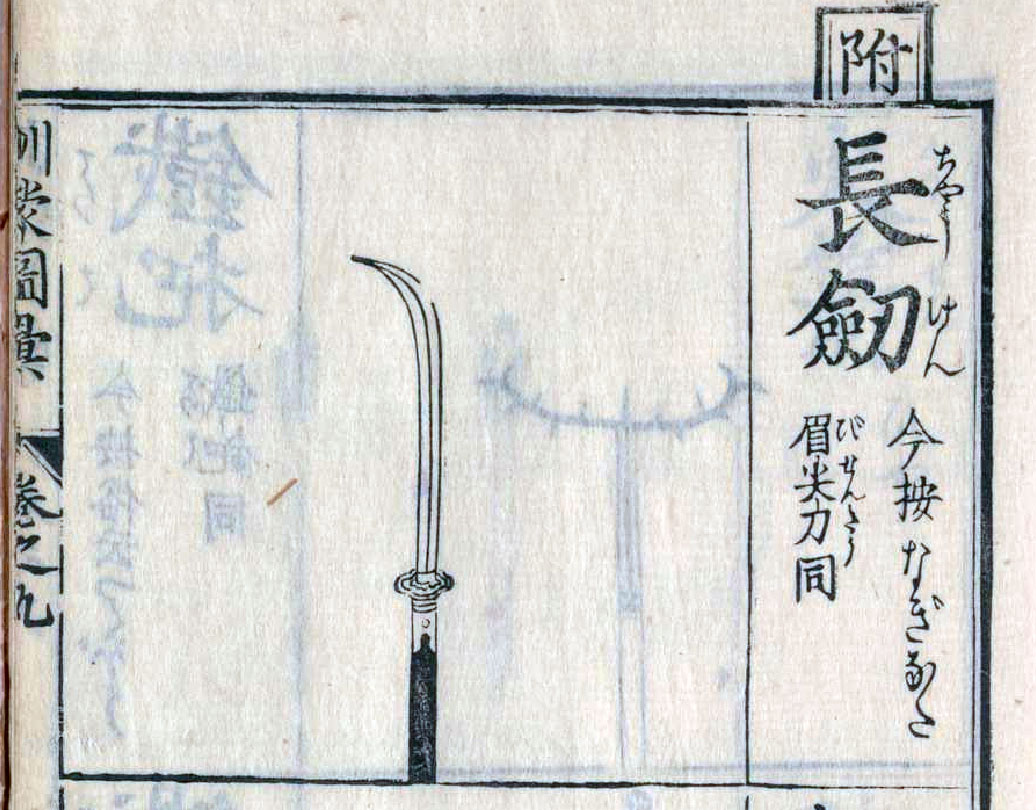 附
長劔
ちやうけん
今按なぎなた
眉尖刀同
びせんたう
訓蒙圖彙
巻之九